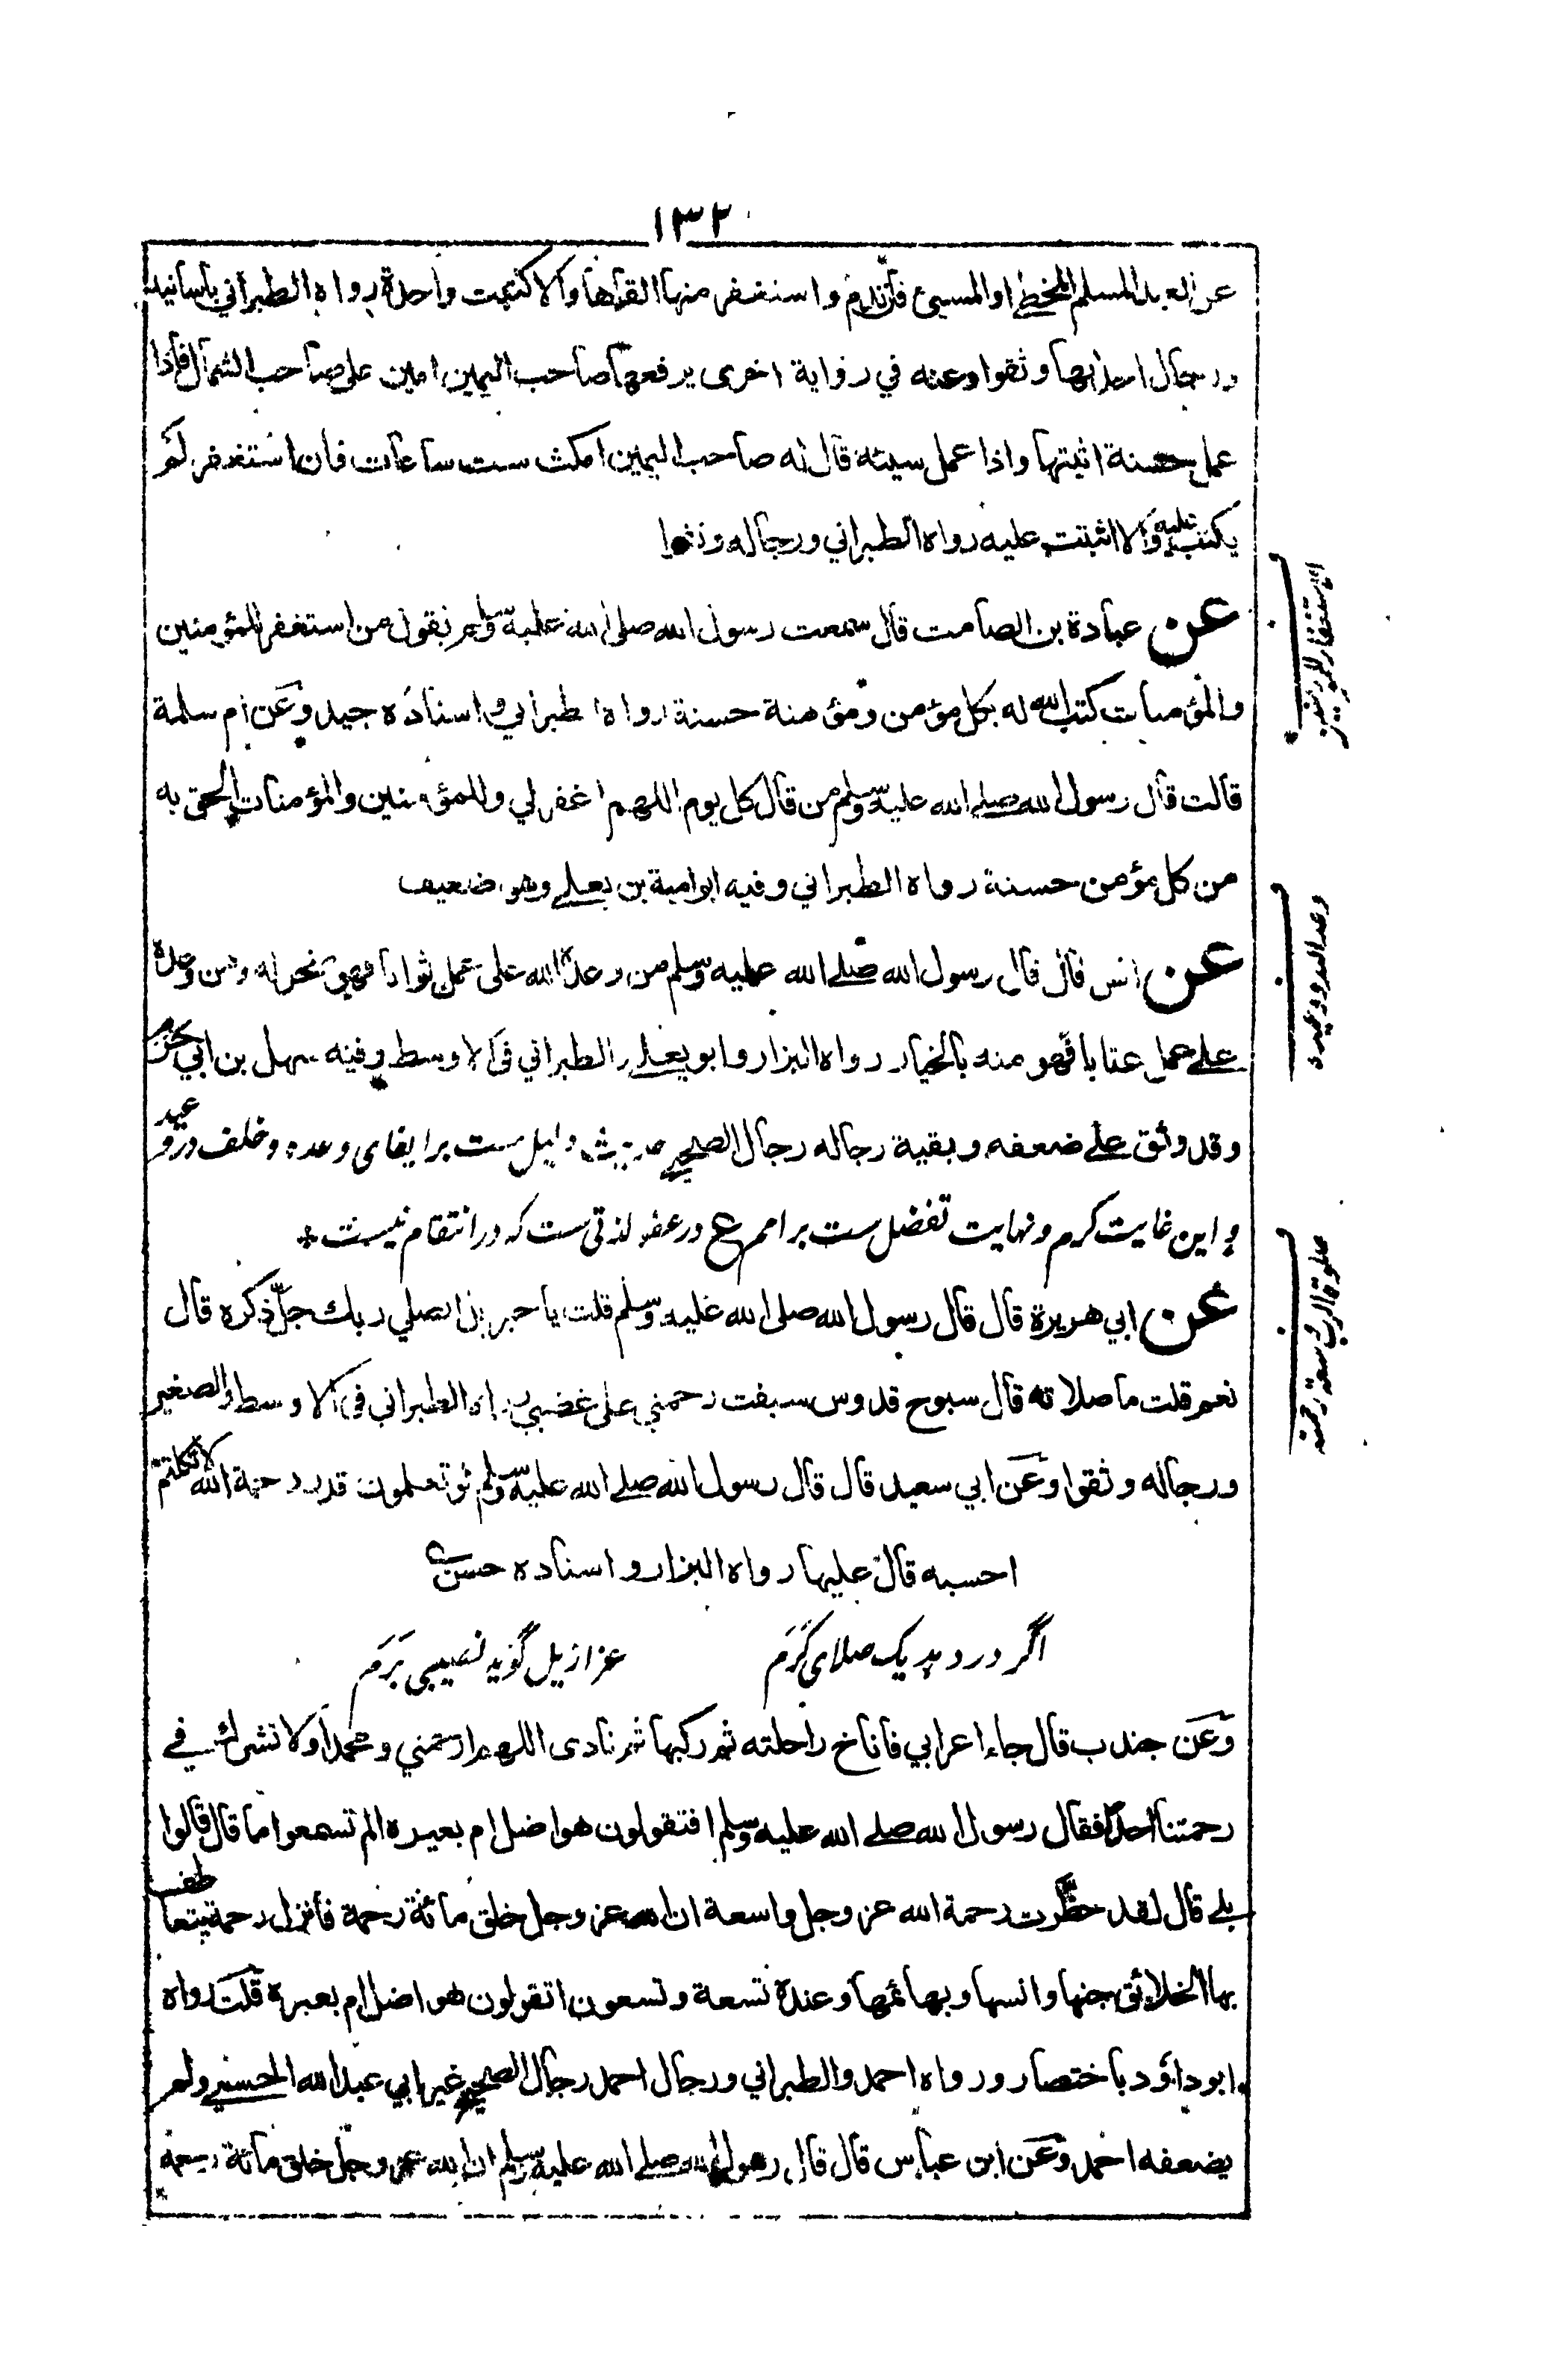 ١٣٢
عن العبد المسلم المخطئ او المسيئ فان ندم واستغفر منها القاها والا كتبت واحدة رواه الطبراني باسانيد
ورجال احدابها وثقوا وعنه في رواية اخرى يرفعها صاحب اليمين امين على صاحب الشمال فاذا
عمل حسنة اثبتها واذا عمل سيئه قال له صاحب اليمين امكث ست ساعات فان استغفر لم
يكتب عليه والا اثبتت عليه رواه الطبراني ورجاله وثقوا
عن عبادة بن الصامت قال سمعت رسول الله صلى الله عليه وسلم يقول من استغفر للمؤمنين
والمؤمنات كتب الله له بكل مؤمن ومؤمنة حسنة رواه الطبراني واسناده جيد وعن ام سلمة
قالت قال رسول الله صلى الله عليه وسلم من قال كل يوم اللهم اغفر لي وللمؤمنين والمؤمنات الحق به
من كل مؤمن حسنة رواه الطبراني وفيه ابو امية بن يعلى وهو ضعيف
عن انس قال قال رسول الله صلى الله عليه وسلم من وعده الله على عمل ثوابا فهو منجز له ومن وعده
على عمل عتابا فهو منه بالخيار رواه البزار وابو يعلى والطبراني في الاوسط وفيه سهل بن ابي حزم
وقد وثق على ضعفه وبقية رجاله رجال الصحيح حديث دليل ست بر ايفاى وعده وخلف در وعيد
و اين غايت كرم ونهايت تفضل ست بر امم ع در عفو لذتى ست كه در انتقام نيست *
عن ابي هريرة قال قال رسول الله صلى الله عليه وسلم قلت يا جبريل ايصلي ربك جل ذكره قال
نعم قلت ما صلاته قال سبوح قدوس سبقت رحمتي على غضبي رواه الطبراني في الاوسط والصغير
ورجاله وثقوا وعن ابي سعيد قال قال رسول الله صلى الله عليه وسلم لو تعلمون قدر رحمة الله لاتكلتم
احسبه قال عليها رواه البزار واسناده حسن ع
اگر در دہد یک صلای کرم عزازیل گوید نصیبی برم
وعن جندب قال جاء اعرابي فاناخ راحلته ثم ركبها ثم نادى اللهم ارحمني ومحمدا ولا تشرك في
رحمتنا احدا فقال رسول الله صلى الله عليه وسلم افتقولون هو اضل ام بعيره الم تسمعوا ما قال قالوا
بلى قال لقد حظرت رحمة الله عز وجل واسعة ان الله عز وجل خلق مائة رحمة فانزل رحمة يتعاطف
بها الخلائق جنها وانسها وبهائمها وعنده تسعة وتسعون اتقولون هو اضل ام بعيره قلت رواه
ابو داؤد باختصار ورواه احمد والطبراني ورجال احمد رجال الصحيح غير ابي عبد الله الحسني ولم
يضعفه احمد وعن ابن عباس قال قال رسول الله صلى الله عليه وسلم ان الله عز وجل خلق مائة رحمة
وعد الله ووعيده
صلوة الرب سعة رحمته